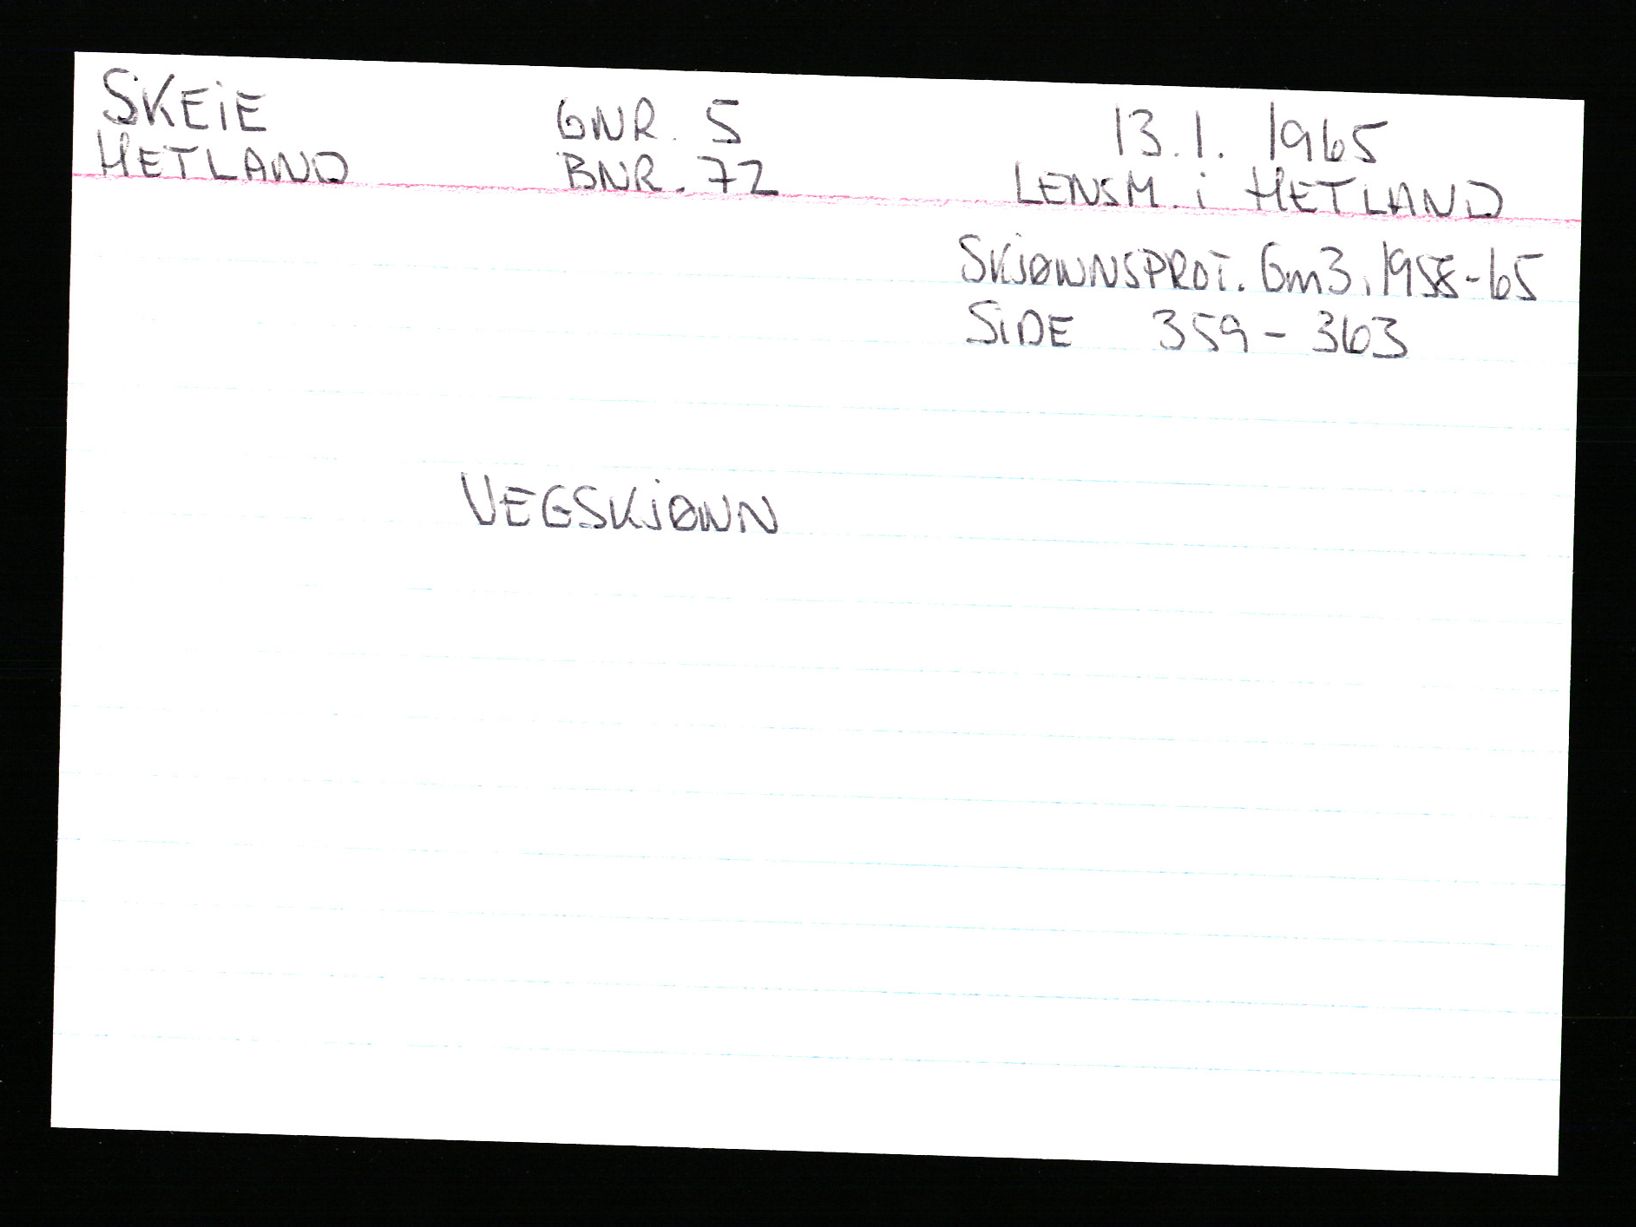 SKEIE
HETLAND
GNR. 5
BNR. 72
13.1. 1965
LENSM. i HETLAND
SKJØNNSPROT. Gm3, 1958-65
SIDE 359-363
VEGSKJØNN